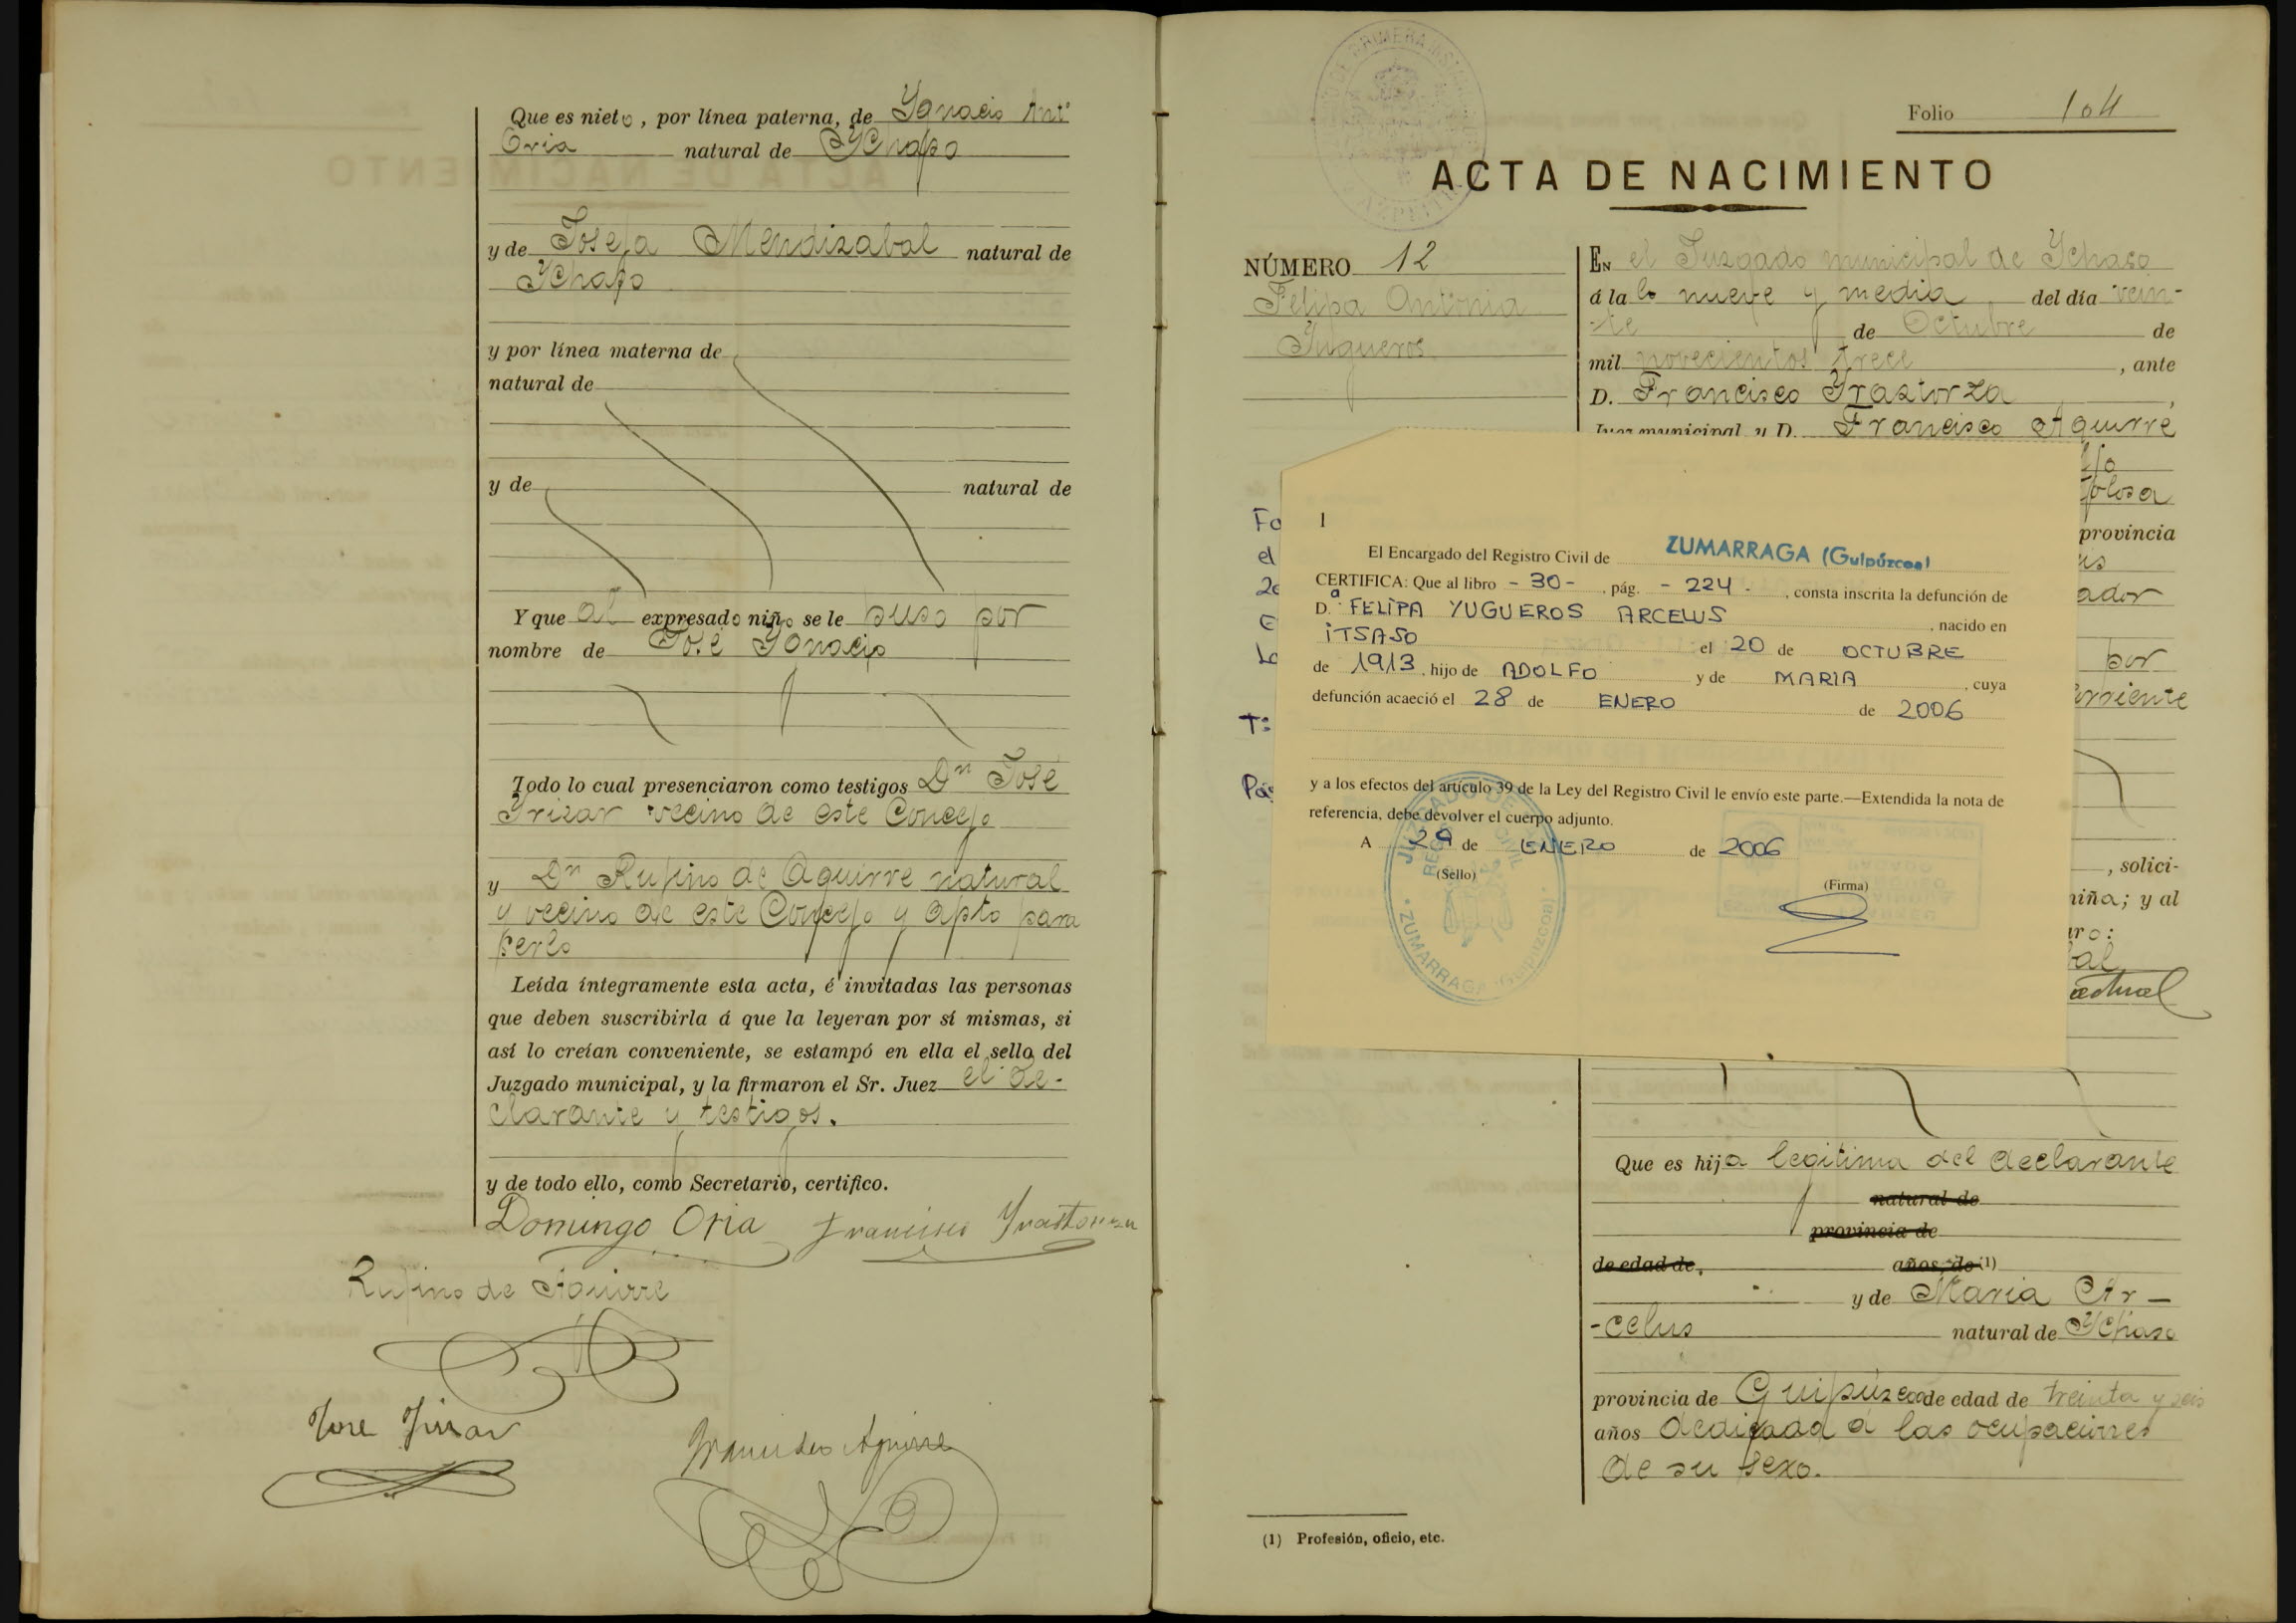 Que es nieto, por línea paterna, de Ygnacio Antº
Oria natural de Ychaso
y de Josefa Mendizabal natural de
Ychaso
y por línea materna de
natural de
y de natural de
Y que al expresado niño se le puso por
nombre de José Ygnacio
Todo lo cual presenciaron como testigos Dn José
Yrizar vecino de este Concejo
y Dn Rufino de Aguirre natural
y vecino de este Concejo y apto para
serlo
Leída íntegramente esta acta, é invitadas las personas
que deben suscribirla á que la leyeran por sí mismas, si
así lo creían conveniente, se estampó en ella el sello del
Juzgado municipal, y la firmaron el Sr. Juez el de-
clarante y testigos.
y de todo ello, como Secretario, certifico.
Domingo Oria Francisco Yrastorza
Rufino de Aguirre
Jose Yrizar
Francisco Aguirre
Folio 104
ACTA DE NACIMIENTO
NÚMERO 12
Felipa Antonia
Yugueros
EN el Juzgado municipal de Ychaso
á la s nueve y media del día vein-
-te de Octubre de
mil novecientos trece, ante
D. Francisco Yrastorza,
Juez municipal y D. Francisco Aguirre
Tolosa
provincia
ador
por
orriente
, solici-
niña; y al
uro:
actual
1
El Encargado del Registro Civil de ZUMARRAGA (Guipúzcoa)
CERTIFICA: Que al libro - 30 - , pág. - 224 - , consta inscrita la defunción de
D.ª FELIPA YUGUEROS ARCELUS , nacido en
ITSASO el 20 de OCTUBRE
de 1913, hijo de ADOLFO y de MARIA , cuya
defunción acaeció el 28 de ENERO de 2006
y a los efectos del artículo 39 de la Ley del Registro Civil le envío este parte.—Extendida la nota de
referencia, debe devolver el cuerpo adjunto.
A 29 de ENERO de 2006
(Sello)
(Firma)
JUZGADO DE
REGISTRO CIVIL
ZUMARRAGA (Guipúzcoa)
Que es hija legítima del declarante
natural de
provincia de
de edad de, años, de (1)
y de Maria Ar-
-celus natural de Ychaso
provincia de Guipúzcoa de edad de treinta y seis
años dedicada á las ocupaciones
de su sexo.
(1) Profesión, oficio, etc.